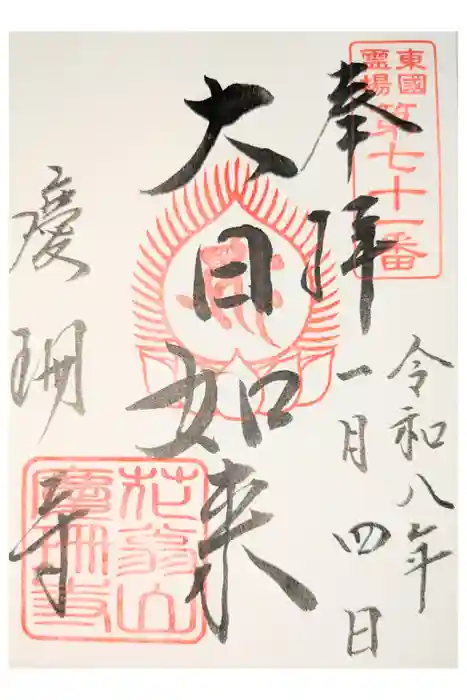 東國
霊場
第七十一番
奉拝
令和八年
一月四日
大日如来
慶珊寺
花翁山
慶珊寺